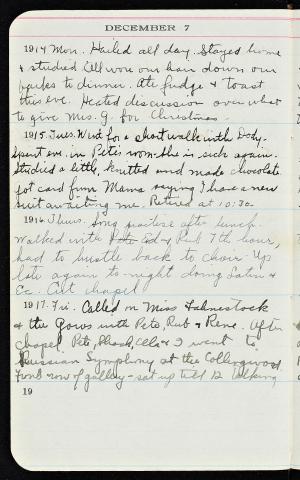 DECEMBER 7
1914 Mon. Hailed all day. Stayed home
& studied. All wore our hair down our
backs to dinner. Ate fudge & toast
this eve. Heated discussion over what
to give Mrs. G. for Christmas.
1915. Tues. Went for a short walk with Dody.
Spent eve. in Pete's room. She is sick again.
Studied a little, knitted and made chocolate.
Got card from Mama saying I have a new
suit awaiting me. Retired at 10:30.
1916 Thurs. Song practise after lunch.
Walked with Pete Ad & Rub 7th hour,
had to hustle back to choir. Up
late again to-night doing Latin &
Ec. Cut chapel
1917. Fri. Called on Miss Fahnestock
& the Gows with Pete, Rub & Rene. After
chapel Pete, Shock, Cele & I went to
Russian Symphony at the Collingwood.
Front row of gallery - sat up till 12 talking
19